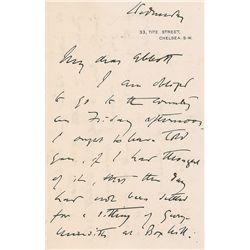 Wednesday
33, TITE STREET,
CHELSEA. S.W.
My dear Abbott
I am obliged
to go to the country
on Friday afternoon
I ought to have told
you, if I had thought
of it, that the day
had now been settled
for a sitting of George
Meredith at Box Hill.